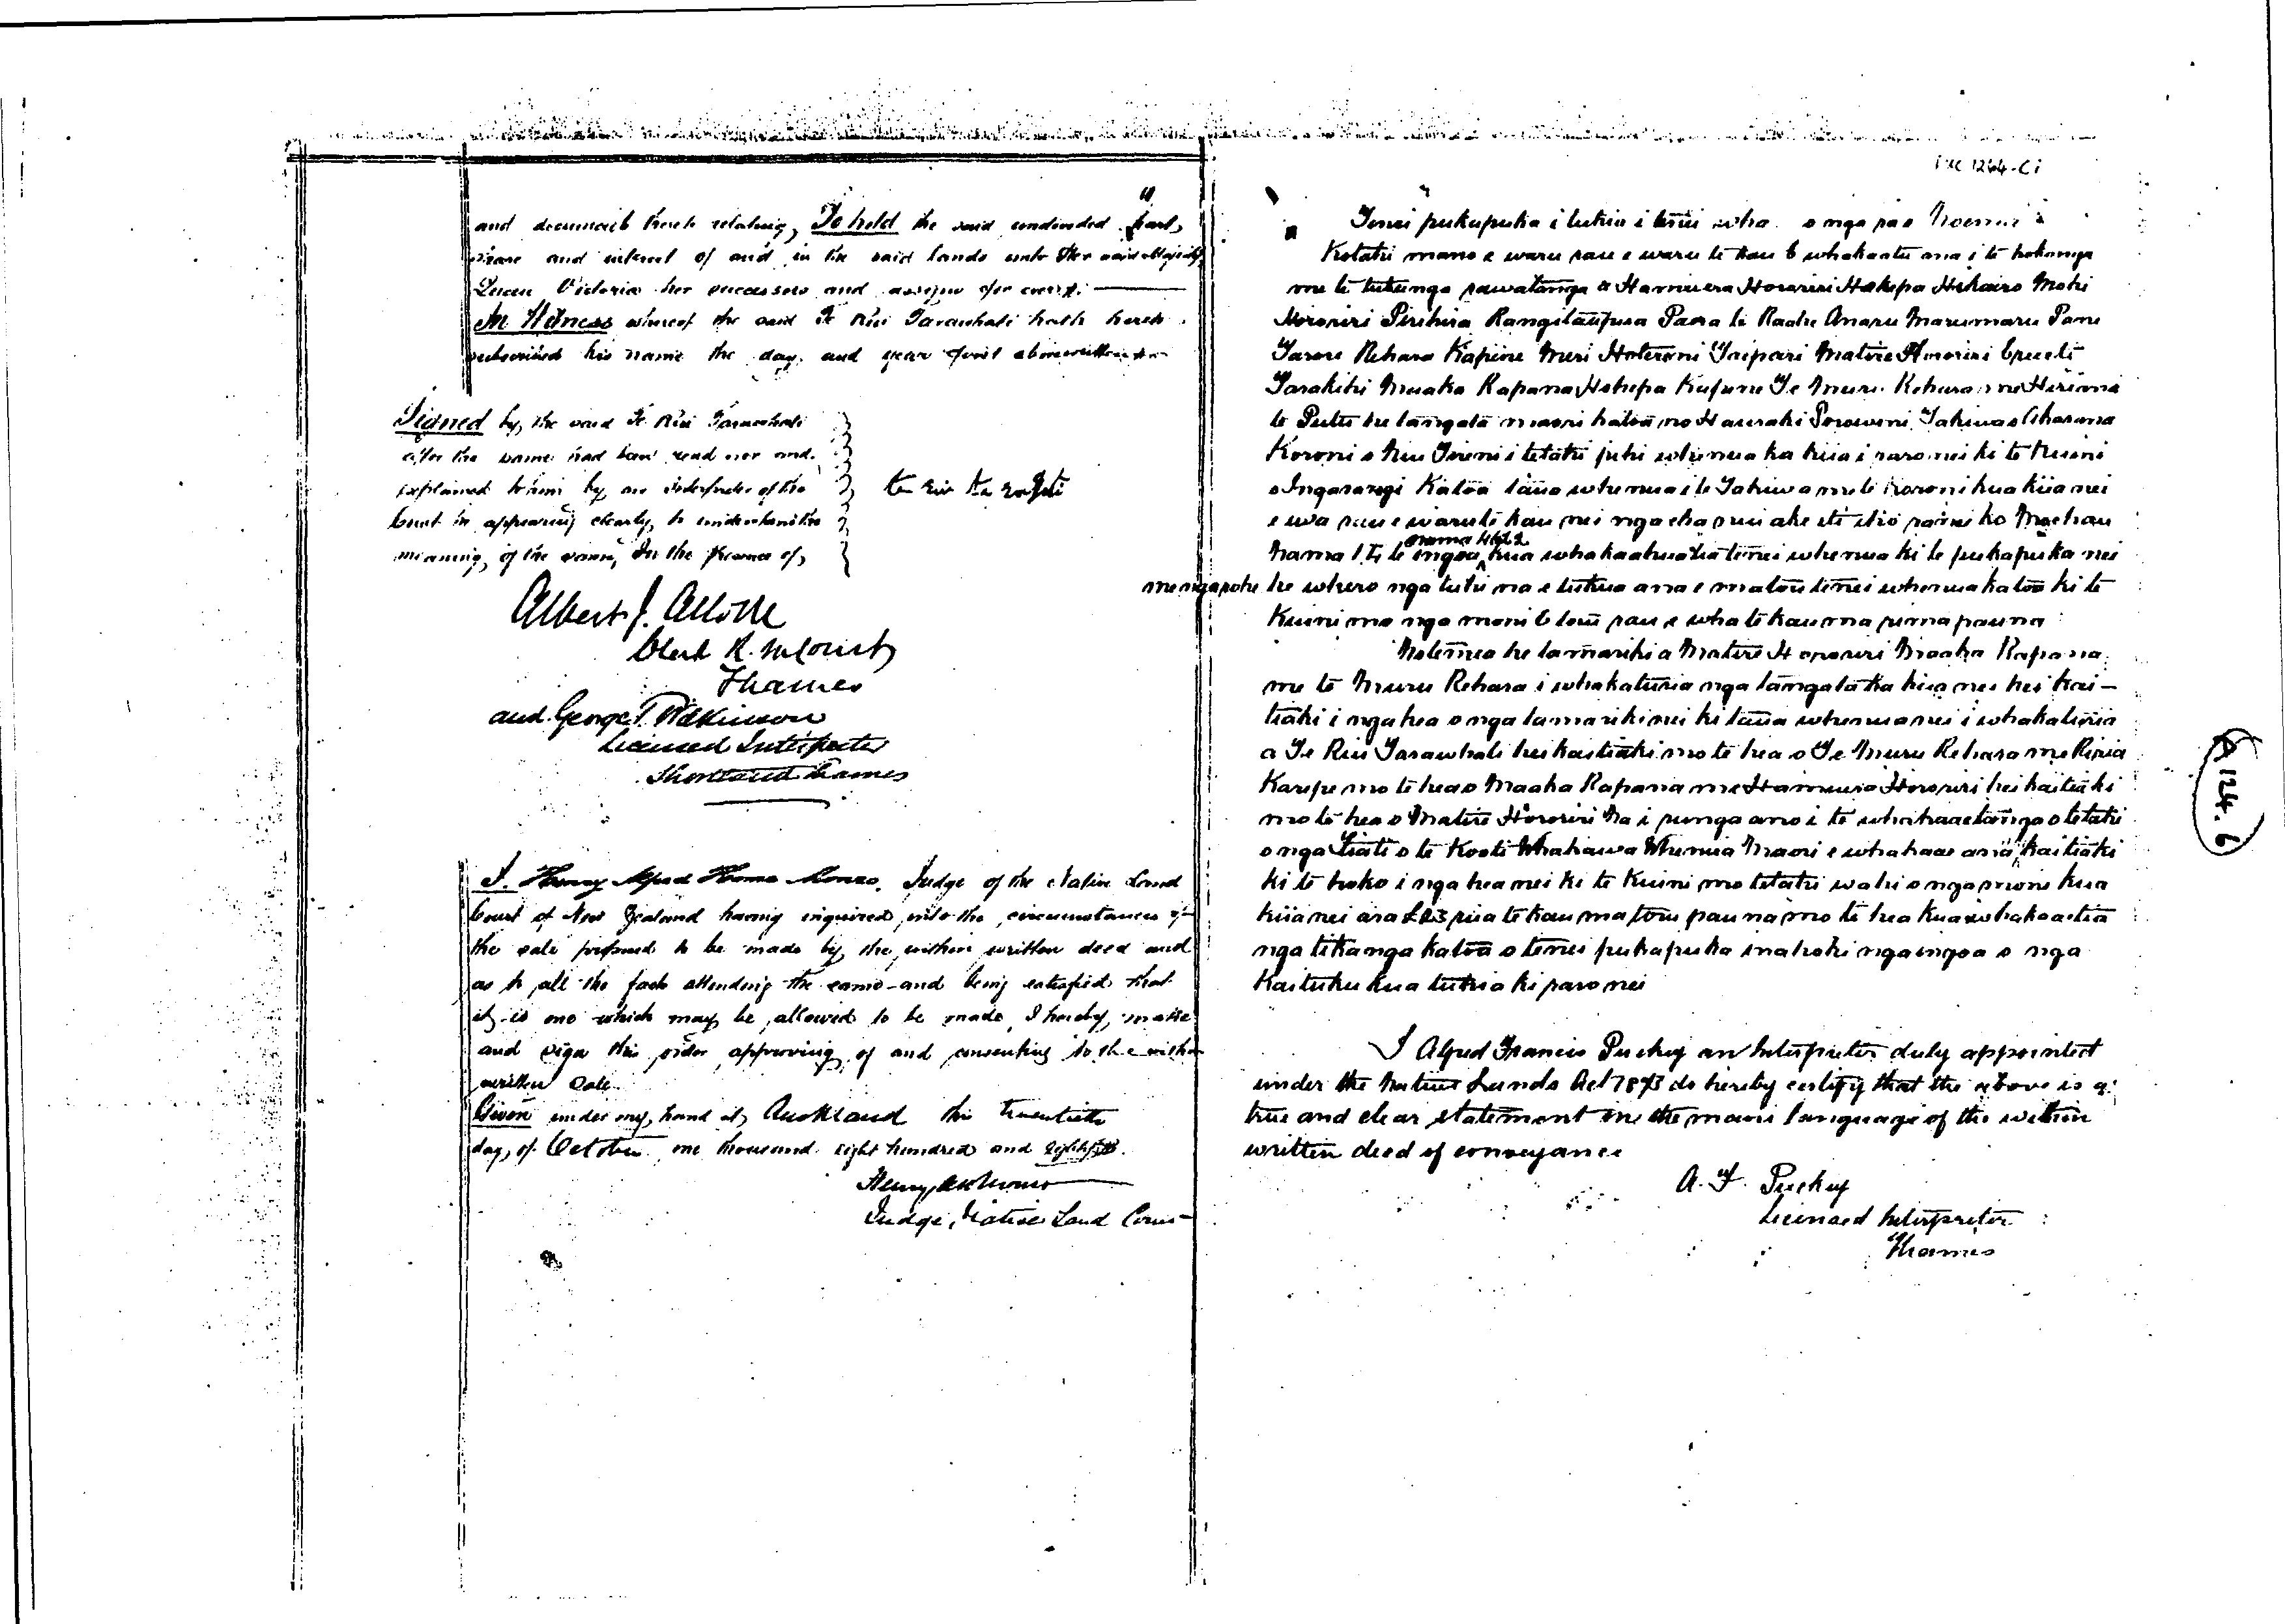 and documents thereto relating, To hold the said undivided part,
share and interest of and in the said lands unto Her said Majesty
Queen Victoria her successors and assigns for ever:
In Witness whereof the said Te Riu Tarawhati hath hereto
subscribed his name the day and year first abovewritten
Signed by the said Te Riu Tarawhati
after the same had been read over and
explained to him by an Interpreter of the
Court he appearing clearly to understand the
meaning of the same, In the presence of
Albert J. Allom
Clerk R. M. Court
Thames
and George T. Wilkinson
Licensed Interpreter
Shortland Thames
I. Henry Alfred Home Monro, Judge of the Native Land
Court of New Zealand having inquired into the circumstances of
the sale proposed to be made by the within written deed and
as to all the facts attending the same and being satisfied that
it is one which may be allowed to be made, I hereby make
and sign this order approving of and consenting to the within
written sale.
Given under my hand at Auckland this twentieth
day of October one thousand eight hundred and
Henry
Judge, Native Land Court
1244-C1
Tenei pukapuka i tuhia i tenei wha o nga rao
Kotahi mano e waru rau e waru te kau E whakaatu ana i te hokonga
me te tukunga rawatanga a Hamiora Hororiri Hohepa Hikairo Mohi
Hororiri Pirihira Rangitaupua Paora te Raahu Anaru Marumaru Pane
Tarore Rehara Kapine Meri Hoterini Taipari Matire Hororiri
Tarakihi Maaka Rapana Hohepa Te Muru Rehara me Hiriana
te he tangata maori katoa no Hauraki Porowini Takiwa o Akarana
Koroni o Niu Tireni i tetahi pihi whenua ka kiia i raro nei ki te Kuini
o Ingarangi Katoa taua whenua i te Takiwa me te Koroni kua kiia nei
e iwa rau e waru te kau nei nga eka nui ake iti iho ranei ko Moehau
nama 4622
Nama 1 te ingoa kua whakaahuatia tenei whenua ki te pukapuka nei
me nga rohe he whero nga tuhi na e tukua ana e matou tenei whenua katoa ki te
Kuini mo nga moni e toru rau e wha te kau ma rima pauna
Notemea he tamariki a Matire Hororiri Maaka Rapana
me te Muru Rehara i whakaturia nga tangata ka kiia nei hei kai-
tiaki i nga hea o nga tamariki nei ki taua whenua nei i whakaturia
a Te Riu Tarawhati hei kaitiaki mo te hea o Te Muru Rehara me Riria
Karepe mo te hea o Maaka Rapana me Hamiora Hororiri hei kaitiaki
mo te hea o Matire Hororiri Na i runga ano i te whakaaetanga o tetahi
o nga Tiati o te Kooti Whakawa Whenua Maori e whakaae ana kaitiaki
ki te hoko i nga hea nei ki te Kuini mo tetahi wahi o nga moni kua
kiia nei ara £23 rua te kau ma toru pauna mo te hea kua whakaaetia
nga tikanga katoa o tenei pukapuka inahoki nga ingoa o nga
Kaituku kua tuhia ki raro nei
I Alfred Francis Puckey an Interpreter duly appointed
under the Native Lands Act 1873 do hereby certify that the above is a
true and clear statement in the maori language of the within
written deed of conveyance
A. F. Puckey
Licensed Interpreter
Thames
A 124.6